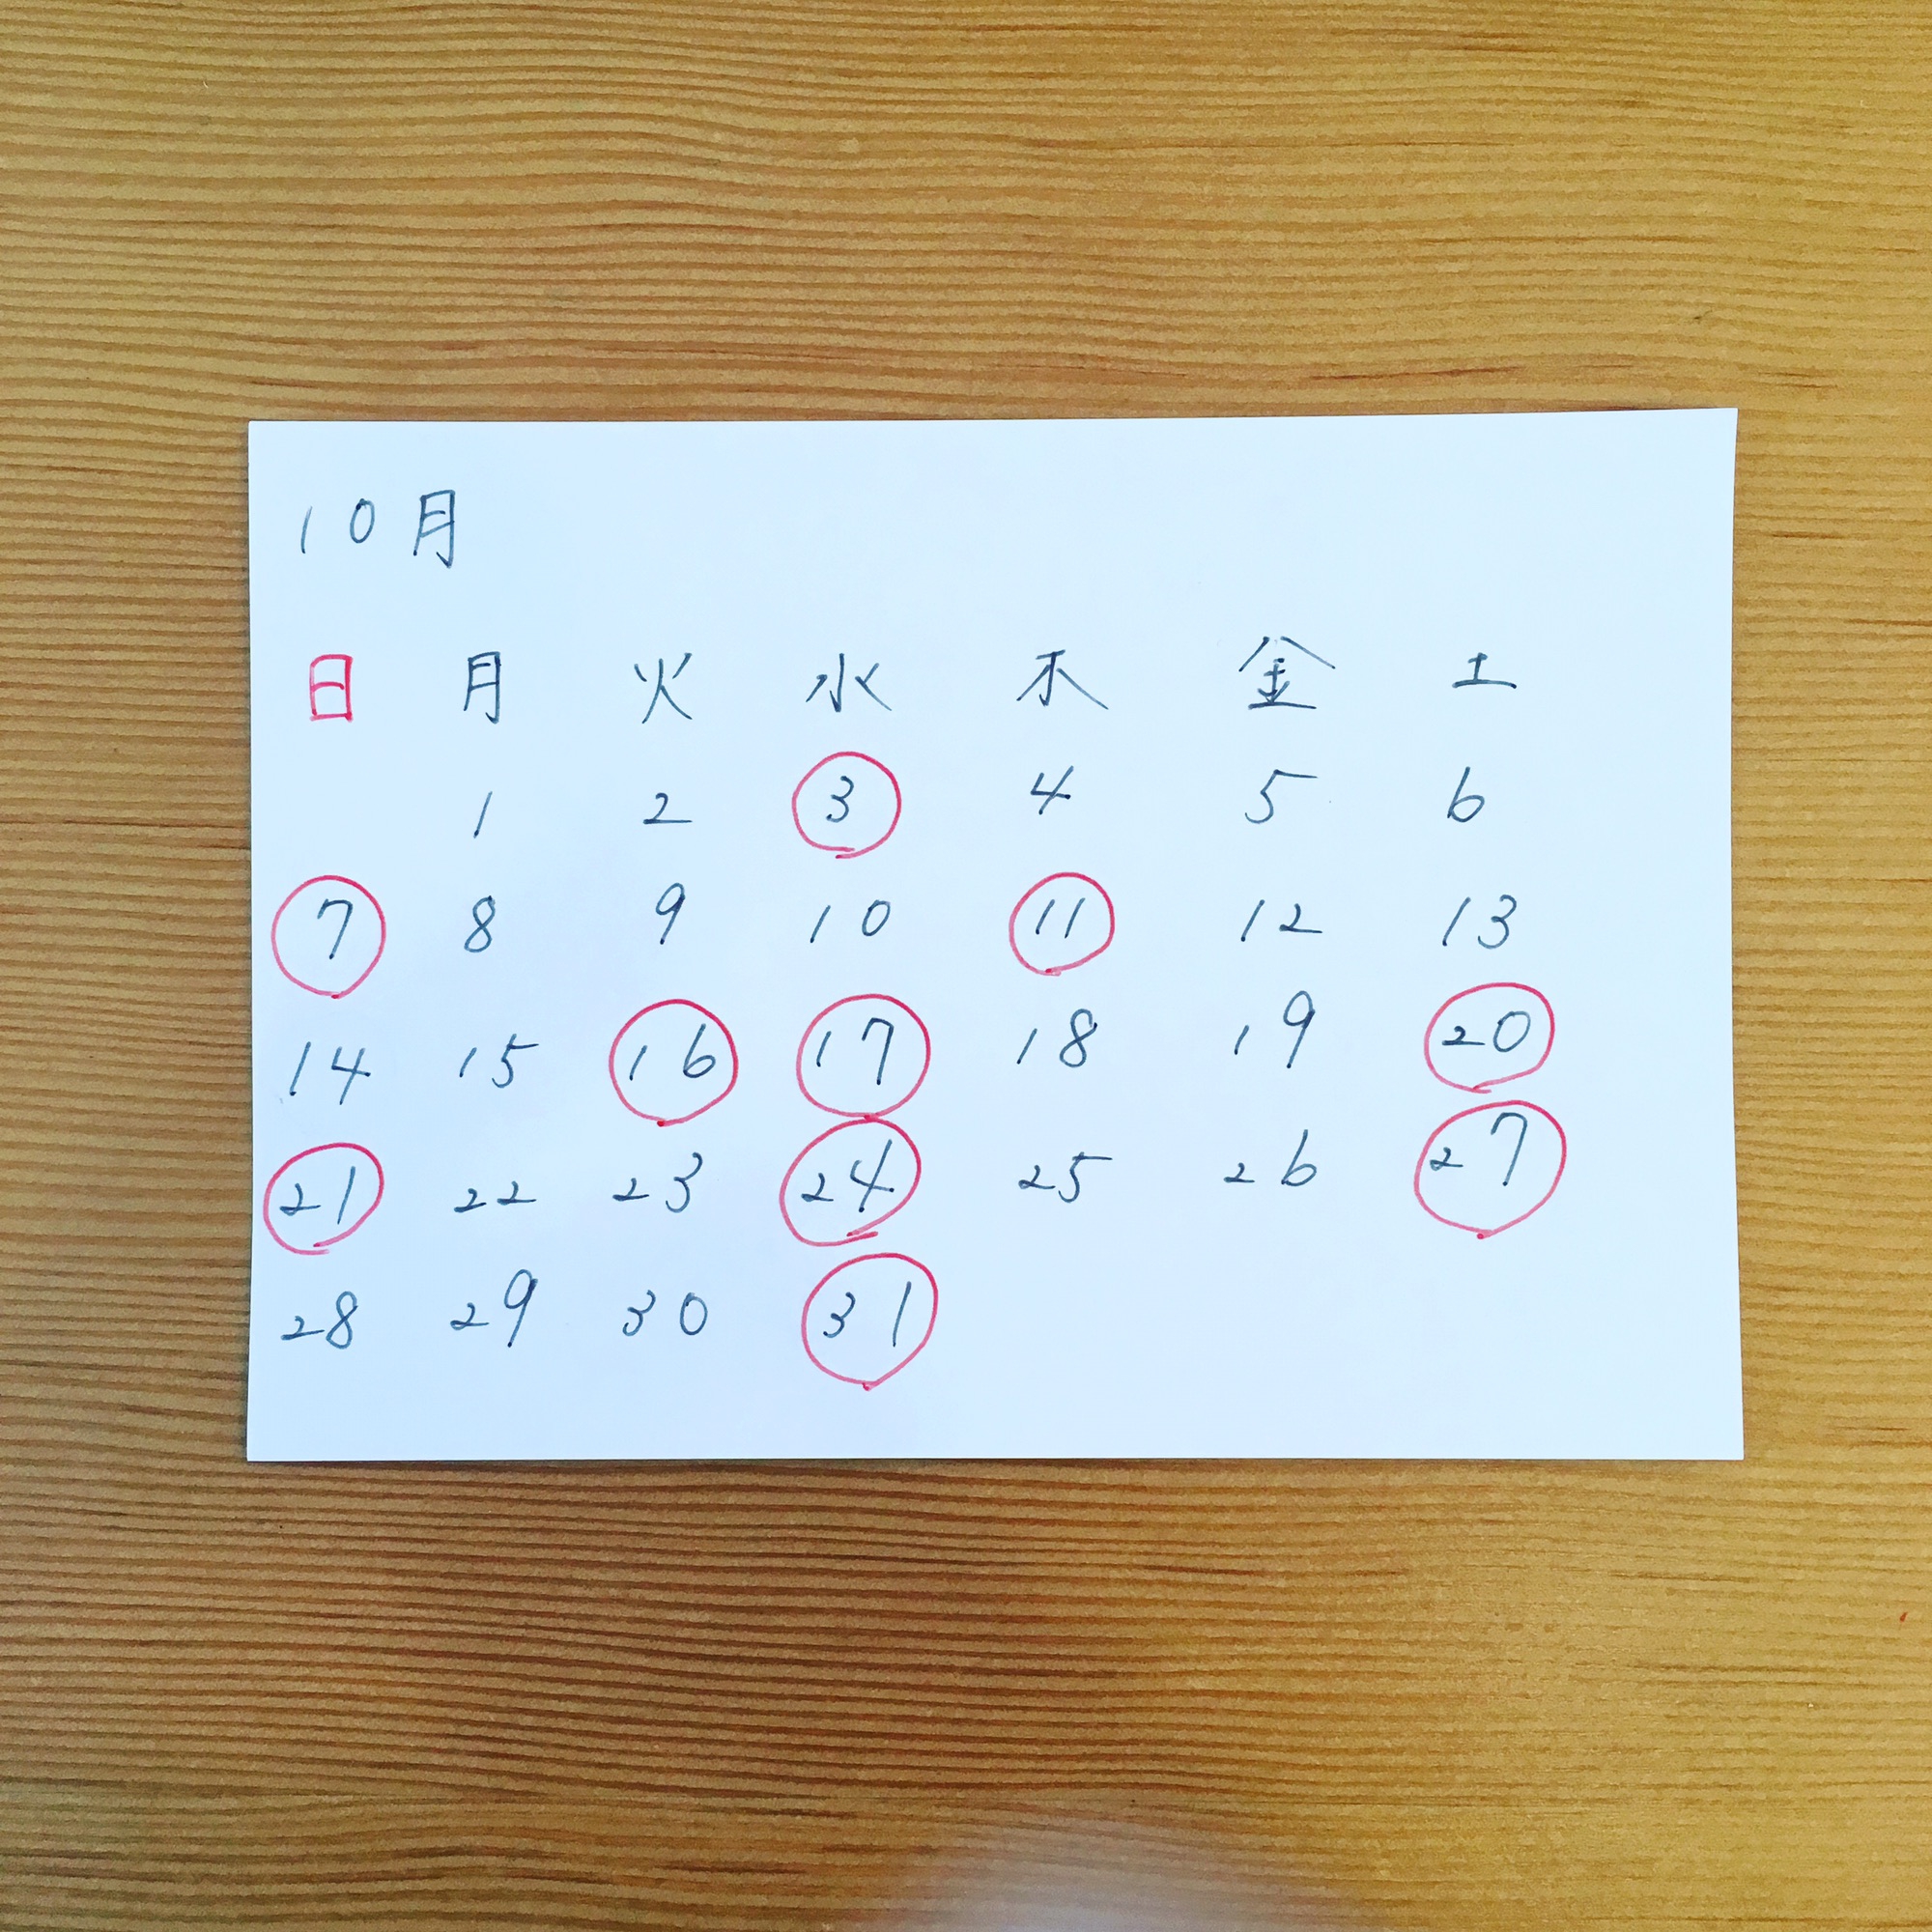 10月
日 月 火 水 木 金 土
1 2 3 4 5 6
7 8 9 10 11 12 13
14 15 16 17 18 19 20
21 22 23 24 25 26 27
28 29 30 31